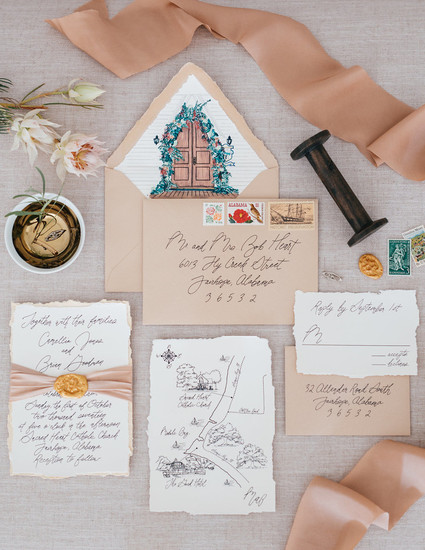 ALABAMA
Mr and Mrs. Bob Heart
6013 Fly Creek Street
Fairhope, Alabama
36532
Together with their families
Camellia Jones
and
Brian Goodman
Sunday the 1st of October
two thousand seventeen
at five o'clock in the afternoon
Sacred Heart Catholic Church
Fairhope, Alabama
Reception to follow
Sacred Heart
Catholic Church
Mobile Bay
The Grand Hotel
Reply by September 1st
M
32 Allender Road South
Fairhope, Alabama
36532